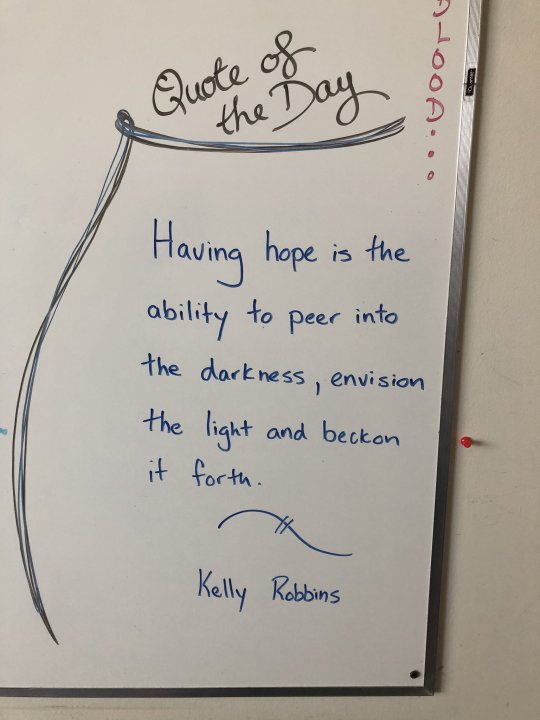 Quote of
the Day
LOOD...
Having hope is the
ability to peer into
the darkness, envision
the light and beckon
it forth.
Kelly Robbins